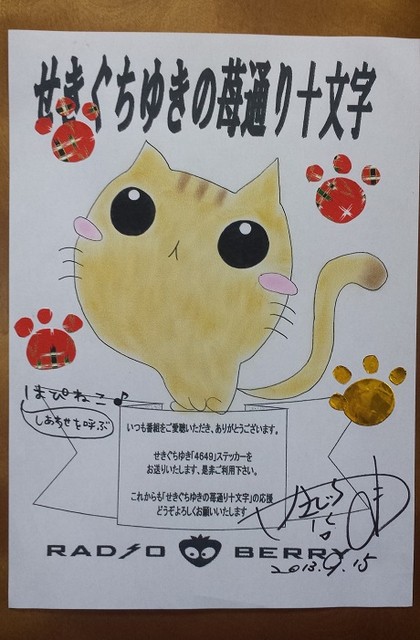 せきぐちゆきの苺通り十文字
はぴねこ♪
しあわせを呼ぶ
いつも番組をご愛聴いただき、ありがとうございます。
せきぐちゆき「4649」ステッカーを
お送りいたします、是非ご利用下さい。
これからも「せきぐちゆきの苺通り十文字」の応援
どうぞよろしくお願いいたします
RADIO BERRY
2013.9.15